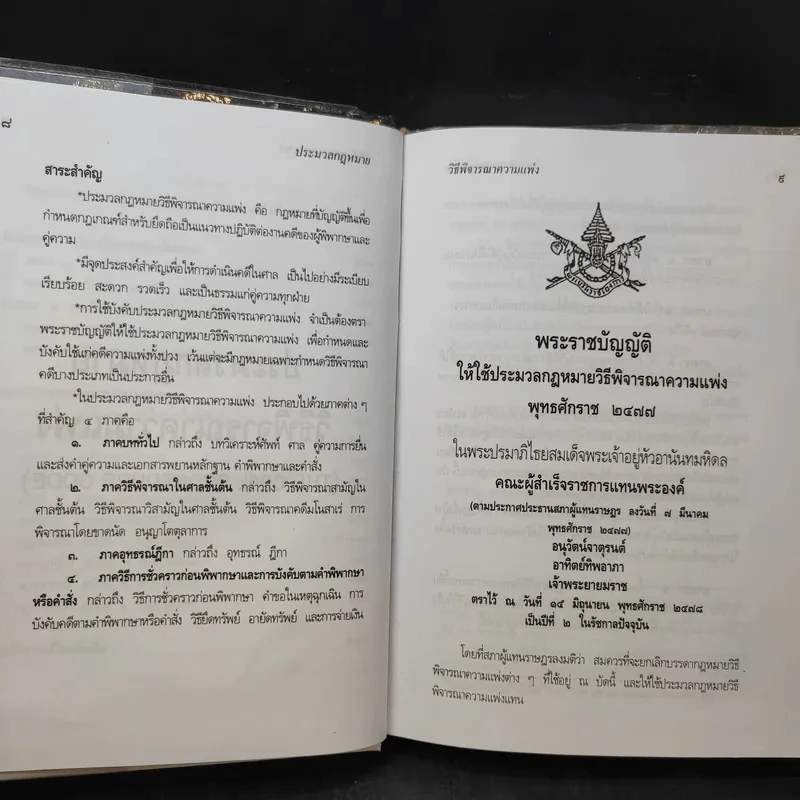 ๘
ประมวลกฎหมาย
สาระสำคัญ
*ประมวลกฎหมายวิธีพิจารณาความแพ่ง คือ กฎหมายที่บัญญัติขึ้นเพื่อ
กำหนดกฎเกณฑ์สำหรับยึดถือเป็นแนวทางปฏิบัติต่องานคดีของผู้พิพากษาและ
คู่ความ
*มีจุดประสงค์สำคัญเพื่อให้การดำเนินคดีในศาล เป็นไปอย่างมีระเบียบ
เรียบร้อย สะดวก รวดเร็ว และเป็นธรรมแก่คู่ความทุกฝ่าย
*การใช้บังคับประมวลกฎหมายวิธีพิจารณาความแพ่ง จำเป็นต้องตรา
พระราชบัญญัติให้ใช้ประมวลกฎหมายวิธีพิจารณาความแพ่ง เพื่อกำหนดและ
บังคับใช้แก่คดีความแพ่งทั้งปวง เว้นแต่จะมีกฎหมายเฉพาะกำหนดวิธีพิจารณา
คดีบางประเภทเป็นประการอื่น
*ในประมวลกฎหมายวิธีพิจารณาความแพ่ง ประกอบไปด้วยภาคต่าง ๆ
ที่สำคัญ ๔ ภาคคือ
๑. ภาคบททั่วไป กล่าวถึง บทวิเคราะห์ศัพท์ ศาล คู่ความการยื่น
และส่งคำคู่ความและเอกสารพยานหลักฐาน คำพิพากษาและคำสั่ง
๒. ภาควิธีพิจารณาในศาลชั้นต้น กล่าวถึง วิธีพิจารณาสามัญใน
ศาลชั้นต้น วิธีพิจารณาวิสามัญในศาลชั้นต้น วิธีพิจารณาคดีมโนสาเร่ การ
พิจารณาโดยขาดนัด อนุญาโตตุลาการ
๓. ภาคอุทธรณ์ฎีกา กล่าวถึง อุทธรณ์ ฎีกา
๔. ภาควิธีการชั่วคราวก่อนพิพากษาและการบังคับตามคำพิพากษา
หรือคำสั่ง กล่าวถึง วิธีการชั่วคราวก่อนพิพากษา คำขอในเหตุฉุกเฉิน การ
บังคับคดีตามคำพิพากษาหรือคำสั่ง วิธียึดทรัพย์ อายัดทรัพย์ และการจ่ายเงิน
วิธีพิจารณาความแพ่ง
๙
พระราชบัญญัติ
ให้ใช้ประมวลกฎหมายวิธีพิจารณาความแพ่ง
พุทธศักราช ๒๔๗๗
ในพระปรมาภิไธยสมเด็จพระเจ้าอยู่หัวอานันทมหิดล
คณะผู้สำเร็จราชการแทนพระองค์
(ตามประกาศประธานสภาผู้แทนราษฎร ลงวันที่ ๗ มีนาคม
พุทธศักราช ๒๔๗๗)
อนุวัตน์จาตุรนต์
อาทิตย์ทิพอาภา
เจ้าพระยายมราช
ตราไว้ ณ วันที่ ๑๕ มิถุนายน พุทธศักราช ๒๔๗๘
เป็นปีที่ ๒ ในรัชกาลปัจจุบัน
โดยที่สภาผู้แทนราษฎรลงมติว่า สมควรที่จะยกเลิกบรรดากฎหมายวิธี
พิจารณาความแพ่งต่าง ๆ ที่ใช้อยู่ ณ บัดนี้ และให้ใช้ประมวลกฎหมายวิธี
พิจารณาความแพ่งแทน